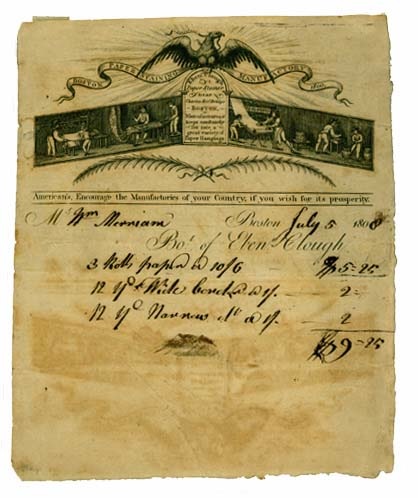 BOSTON PAPER STAINING MANUFACTORY 1800
Paper Stainer
Near
Charles Rivr Bridge
BOSTON,
Manufactures &
keeps constantly
for sale, a
great variety of
Paper Hangings
Americans, Encourage the Manufactories of your Country, if you wish for its prosperity.
Mr Wm Merriam Boston July 5 180
Bot of Eben Clough
3 Rolls paper a 10/6 $5-25
12 Yds Wide border a 1/. 2
12 Yd Narrow do a 1/. 2
$9-25